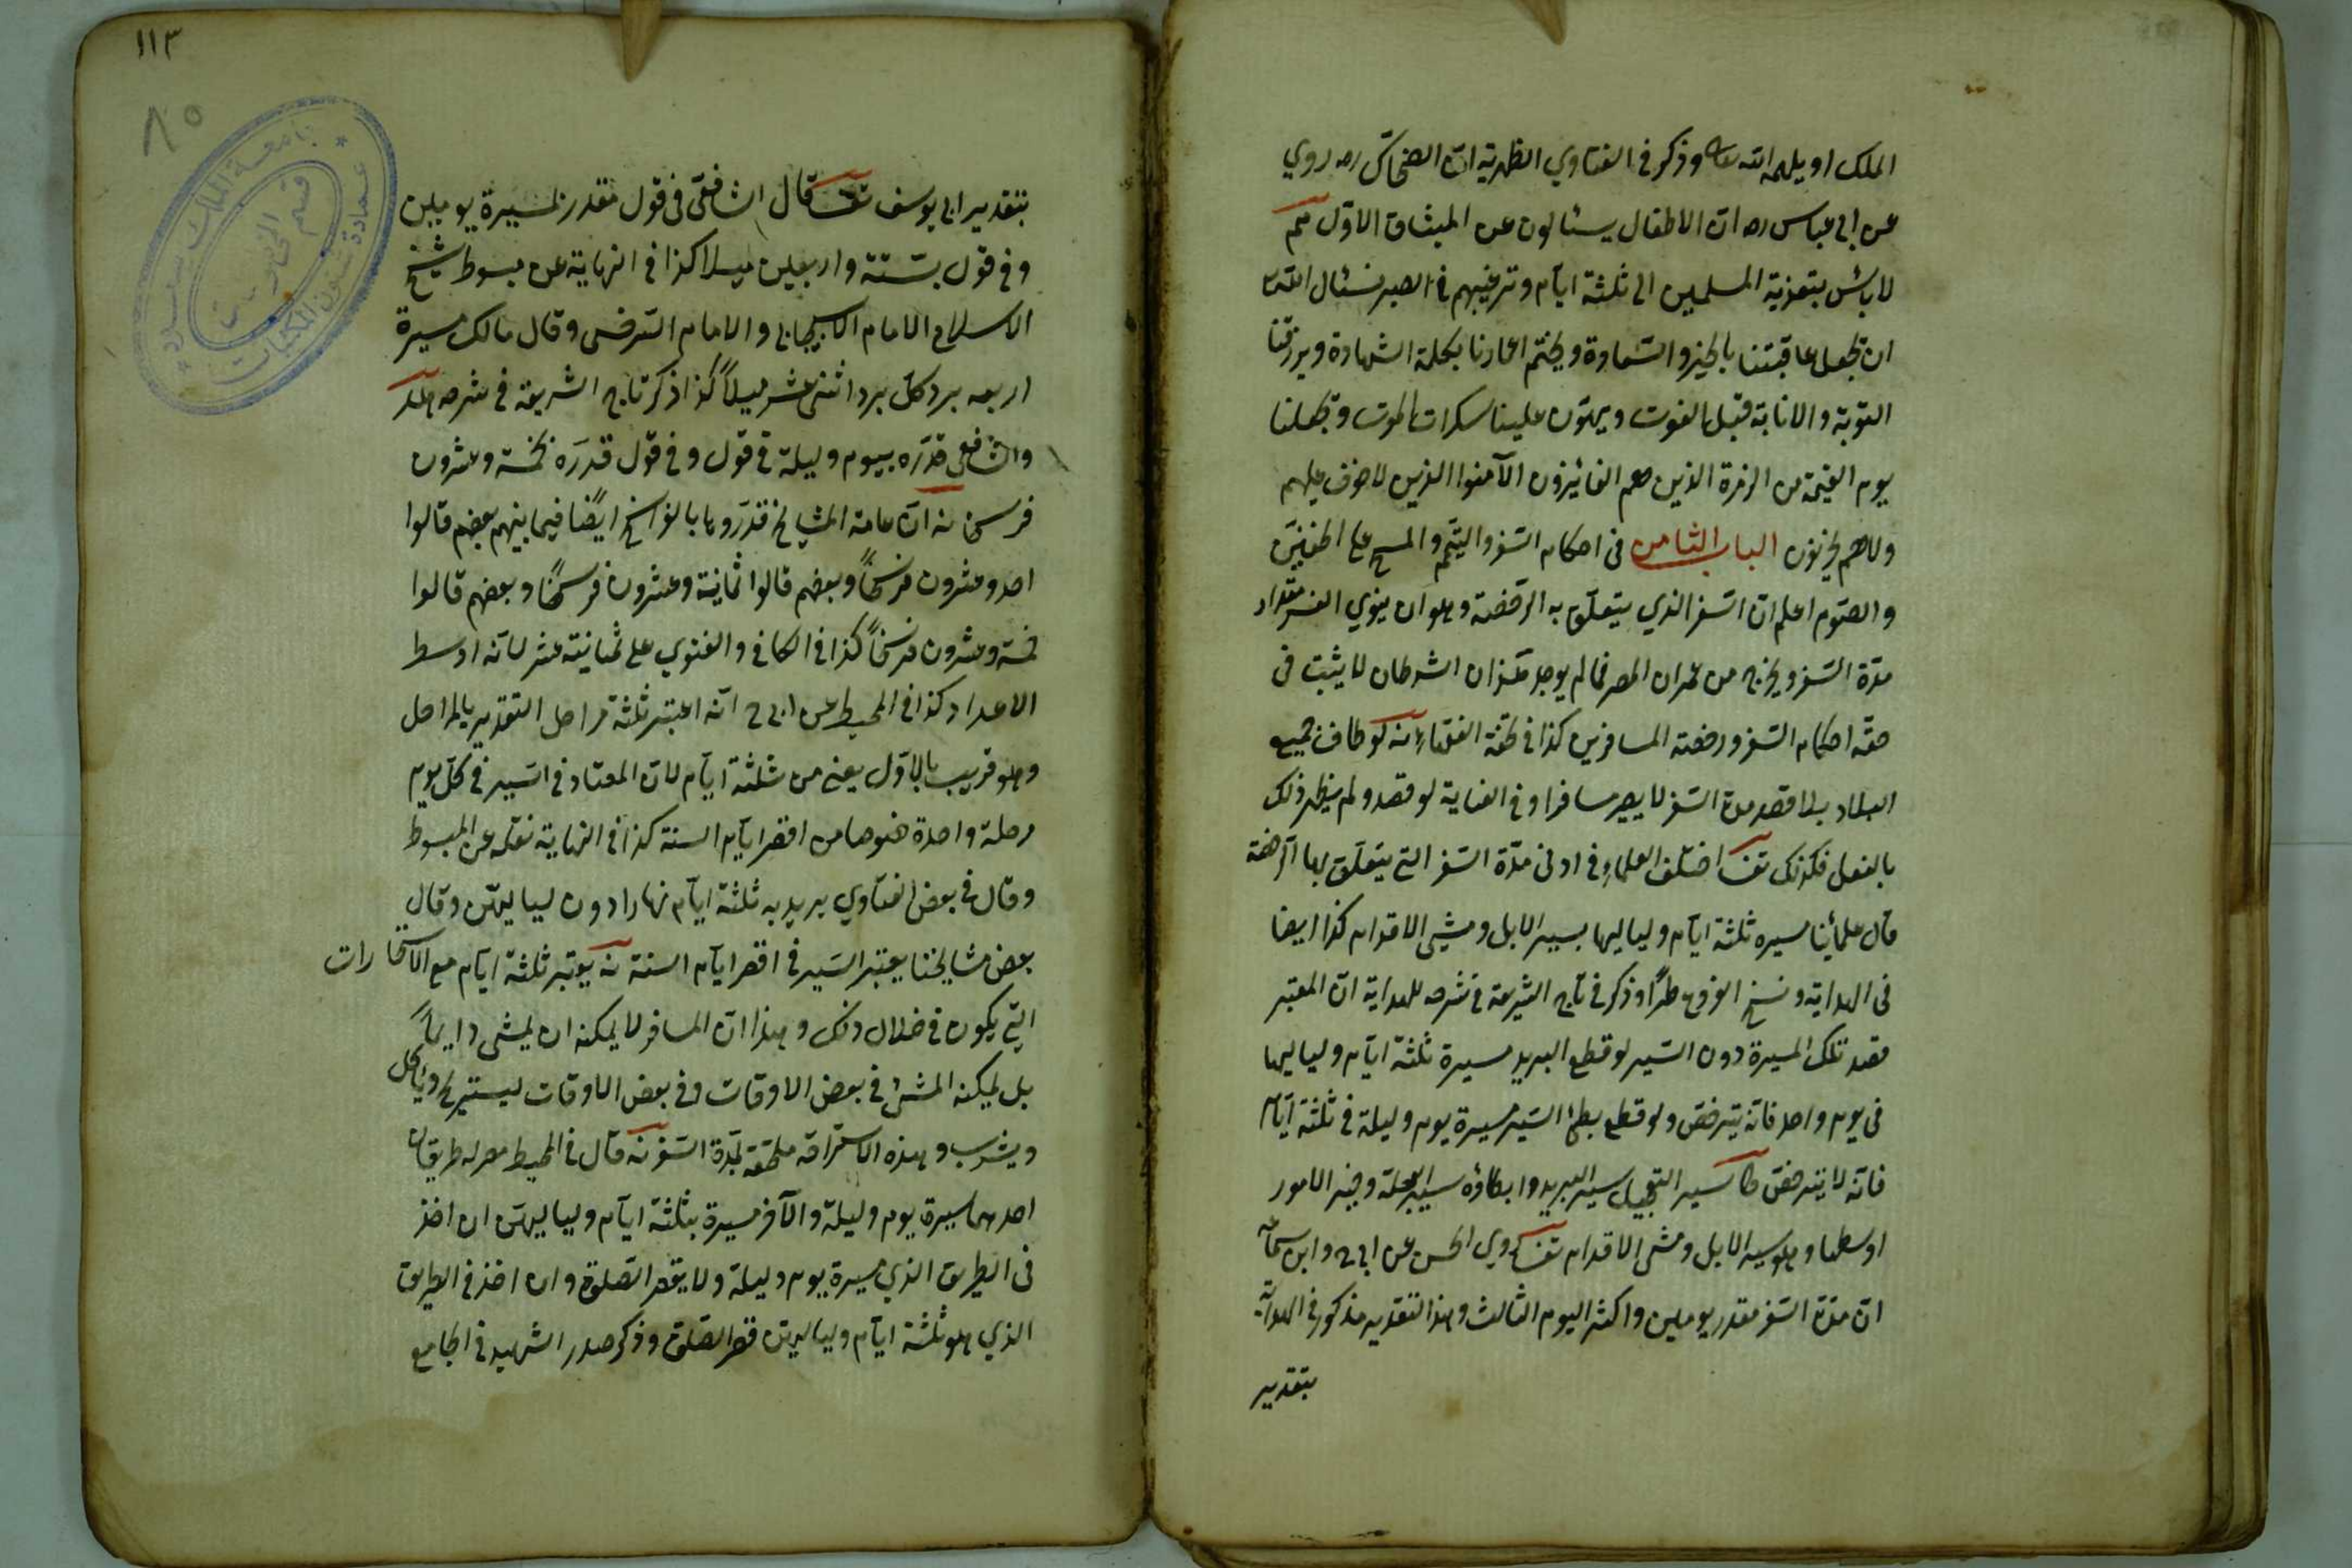 الملك او يلهمه الله تعالى وذكر في الفتاوي الظهرية ان الضحاك ره روي
عن ابي عباس ره ان الاطفال يسئالون عن الميثاق الاول
لا بائس بتعزية المسلمين الى ثلثة ايام وترغيبهم في الصبر نسئال الله
ان يجعل عاقبتنا بالخير والسعادة ويختم اعمارنا بكلمة الشهادة ويرزقنا
التوبة والانابة قبل الفوت ويهون علينا سكرات الموت ويجعلنا
يوم القيمة من الزمرة الذين هم الفائيزون الآمنوا الذين لا خوف عليهم
ولا هم يحزنون الباب الثامن في احكام السفر والتيمم والمسح على الخفين
والصوم اعلم ان السفر الذي يتعلق به الرخصة وهو ان ينوي السفر مقدار
مدة السفر ويخرج من عمران المصر فما لم يوجد هذان الشرطان لا يثبت في
حقه احكام السفر ورخصة المسافرين كذا في تحفة الفقهاء نه لو طاف جميع
البلاد بلا قصد مدة السفر لا يصير مسافرا وفي الغناية لو قصد ولم يظهر ذلك
بالفعل فكذلك تف اختلف العلماء في ادنى مدة السفر التي يتعلق بها الرخصة
قال علمائنا مسيره ثلثة ايام ولياليها بسير الابل ومشي الاقدام كذا ايضا
في الهداية ونسخ الفروع طرا وذكر في تاج الشريعة في شرحه للهداية ان المعتبر
قصد تلك المسيرة دون السير لو قطع البريد مسيرة ثلثة ايام ولياليها
في يوم واحد فانه يترخص ولو قطع بطئ السير مسيرة يوم وليلة في ثلثة ايام
فانه لا يترخص كا سير التعجيل سير البريد وابطاؤه سير العجلة وخير الامور
اوسطها وهو سير الابل ومشي الاقدام تف روي الحسن عن ابي ح وابن سماعة
ان مدة السفر مقدر يومين واكثر اليوم الثالث وهذا التقدير مذكور في الهداية
بتقدير
١١٣
٨٥
جامعة الملك سعود
عمادة شئون المكتبات
قسم المخطوطات
بتقدير ابي يوسف تف قال الشافعي في قول مقدر بمسيرة يومين
وفي قول بستة واربعين ميلا كذا في النهاية عن مبسوط شيخ
الاسلام الامام الاسبيجابي والامام السرخسي وقال مالك مسيرة
اربعه برد كل برد اثنى عشر ميلا كذا ذكر تاج الشريعة في شرحه
والشافعي قدره بيوم وليلة في قول وفي قول قدره بخمسة وعشرون
فرسخا نه ان عامة المشايخ قدروها بالفراسخ ايضا فيما بينهم بعضهم قالوا
احد وعشرون فرسخا وبعضهم قالوا ثمانية وعشرون فرسخا وبعضهم قالوا
خمسة وعشرون فرسخا كذا في الكافي والفتوي على ثمانية عشر لانه اوسط
الاعداد كذا في المحيط عن ابي ح انه اعتبر ثلثة مراحل التقدير بالمراحل
وهو قريب بالاول يعني من ثلثة ايام لان المعتاد في السير في كل يوم
مرحلة واحدة خصوصا من اقصر ايام السنة كذا في النهاية نقله عن المبسوط
وقال في بعض الفتاوي يريد به ثلثة ايام نهارا دون لياليهن وقال
بعض مشايخنا يعتبر السير في اقصر ايام السنة نه يعتبر ثلثة ايام مع الاستخارات
التي يكون في خلال ذلك وهذا ان المسافر لا يمكنه ان يمشي دايما
بل يمكنه المشئ في بعض الاوقات وفي بعض الاوقات ليستريح وياكل
ويشرب وهذه الاستراحة ملحقة بمدة السفر نه قال في المحيط مصر له طريقان
احدهما مسيرة يوم وليلة والآخر مسيرة بثلثة ايام ولياليهن ان اخذ
في الطريق الذي مسيرة يوم وليلة ولا يقصر الصلوة وان اخذ في الطريق
الذي هو ثلثة ايام ولياليهن قصر الصلوة وذكر صدر الشهيد في الجامع